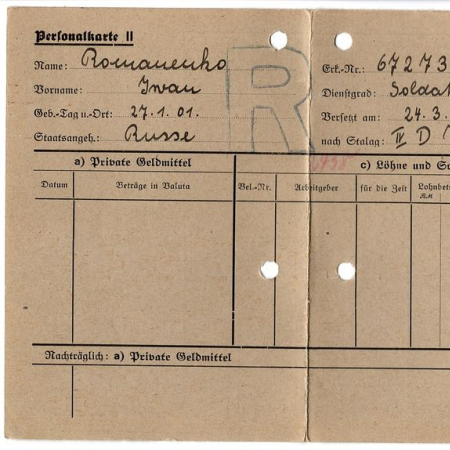 Personalkarte II
Name: Romanenko
Vorname: Iwan
Geb.-Tag u.-Ort: 27.1.01.
Staatsangeh.: Russe
R
Erk.-Nr.: 67273
Dienstgrad: Soldat
Versetzt am: 24.3.
nach Stalag: IV D
a) Private Geldmittel
c) Löhne und
Datum
Beträge in Valuta
Bel.-Nr.
Arbeitgeber
für die Zeit
Lohnbet
RM
Nachträglich: a) Private Geldmittel